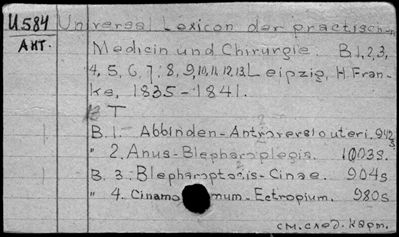 U584 Universal Lexicon der practischen
Акт. Medicin und Chirurgie. B 1, 2, 3,
4, 5, 6, 7, 8, 9, 10, 11, 12, 13. Leipzig, H. Fran-
ke, 1835-1841.
T
B. 1. - Abbinden-Antroversio uteri. 942 s.
" 2. Anus-Blepharoplegis. 1003s.
B. 3. Blepharoptosis-Cinae. 904s
" 4. Cinamo mum-Ectropium. 980s
см. след. карт.